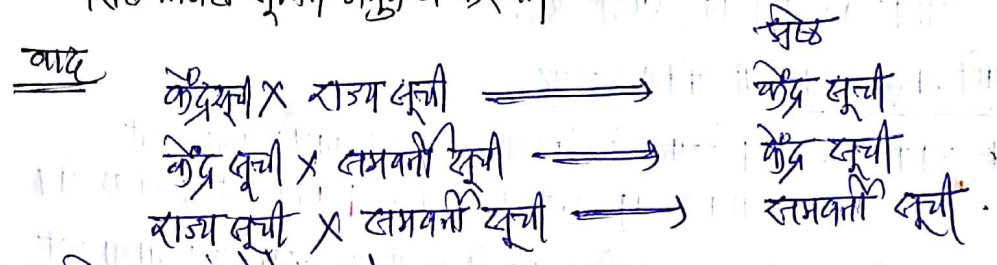 श्रेष्ठ
वाद
केंद्रसूची X राज्य सूची ⟶ केंद्र सूची
केंद्र सूची X समवर्ती सूची ⟶ केंद्र सूची
राज्य सूची X समवर्ती सूची ⟶ समवर्ती सूची.